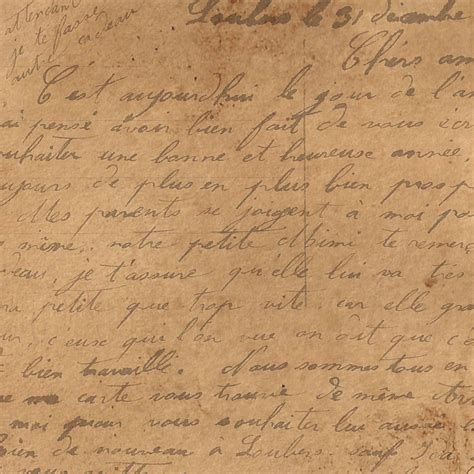 attendant
je te passe
autre cadeau
Loubers le 31 décembre
Chers am
C'est aujourd'hui le jour de l'an
ai pensé avoir bien fait de vous écr
ouhaiter une bonne et heureuse année
ujours de plus en plus bien prosp
Mes parents se joignent à moi po
s même. notre petite Mimi te remerc
deau, je t'assure qu'elle lui va très
ra petite que trop vite. car elle gra
ceux qui l'on vue on dit que c'
t bien travaillé. Nous sommes tous en
carte vous trouve de même
moi pour vous souhaiter
ien de nouveau à Loubers. sauf